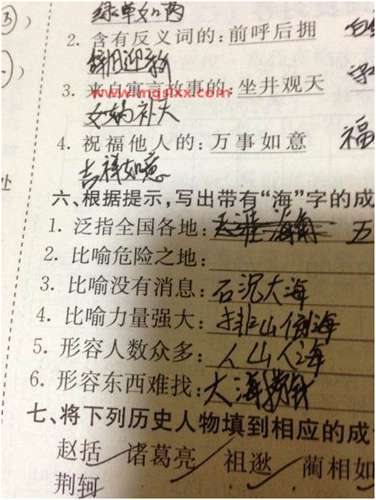 绿草如茵
2. 含有反义词的：前呼后拥
辞旧迎新
3. 来自寓言故事的：坐井观天
www.mgslxx.com
女娲补天
4. 祝福他人的：万事如意 福
吉祥如意
六、根据提示，写出带有“海”字的成
1. 泛指全国各地：天涯海角 五
2. 比喻危险之地：
3. 比喻没有消息：石沉大海
4. 比喻力量强大：排山倒海
5. 形容人数众多：人山人海
6. 形容东西难找：大海捞针
七、将下列历史人物填到相应的成
赵括 诸葛亮 祖逖 蔺相如
荆轲